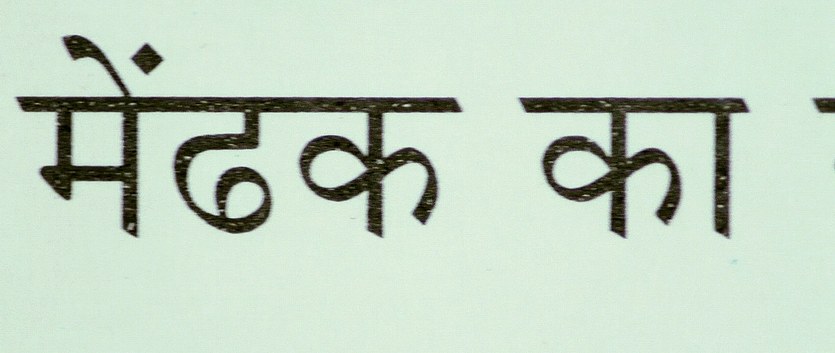 मेंढक का